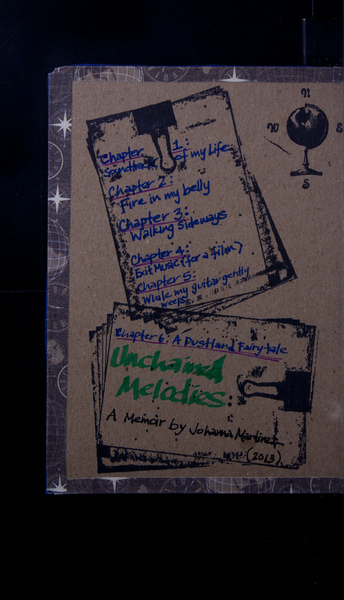 N
W
E
S
Chapter 1:
Soundtrack of my Life
Chapter 2:
Fire in my belly
Chapter 3:
Walking Sideways
Chapter 4:
But Music (for a Film)
Chapter 5:
While my guitar gently
weeps
Chapter 6: A Dustland Fairytale
Unchained
Melodies:
A Memoir by Johanna Martinez
(2013)